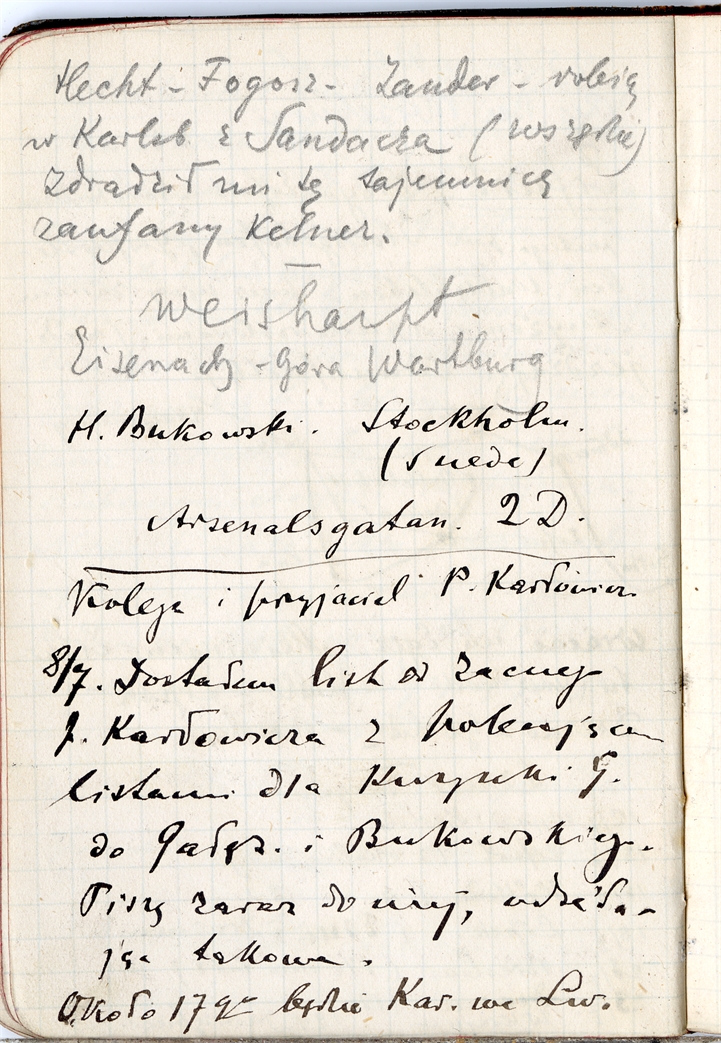 Hecht - Fogosz - Zander - robią
w Karlsb z Sandacza (wszędzie)
zdradził mi tę tajemnicę
zaufany Kelner.
Eisenach - Góra Wartburg
H. Bukowski. Stockholm.
(Suede)
Arsenalsgatan. 2 D.
Kolega i przyjaciel P. Karłowicza
8/7. Dostałem list od zacneg
J. Karłowicza z polecającem
listami dla Kuzynki G.
do Gałęz. i Bukowskieg.
Piszę zaraz do niej,
takowe.
Około 17 go będzie Kar. we Lw.